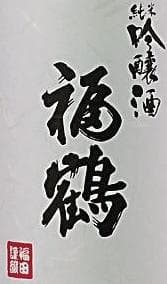 純米
吟醸酒
福鶴
福田